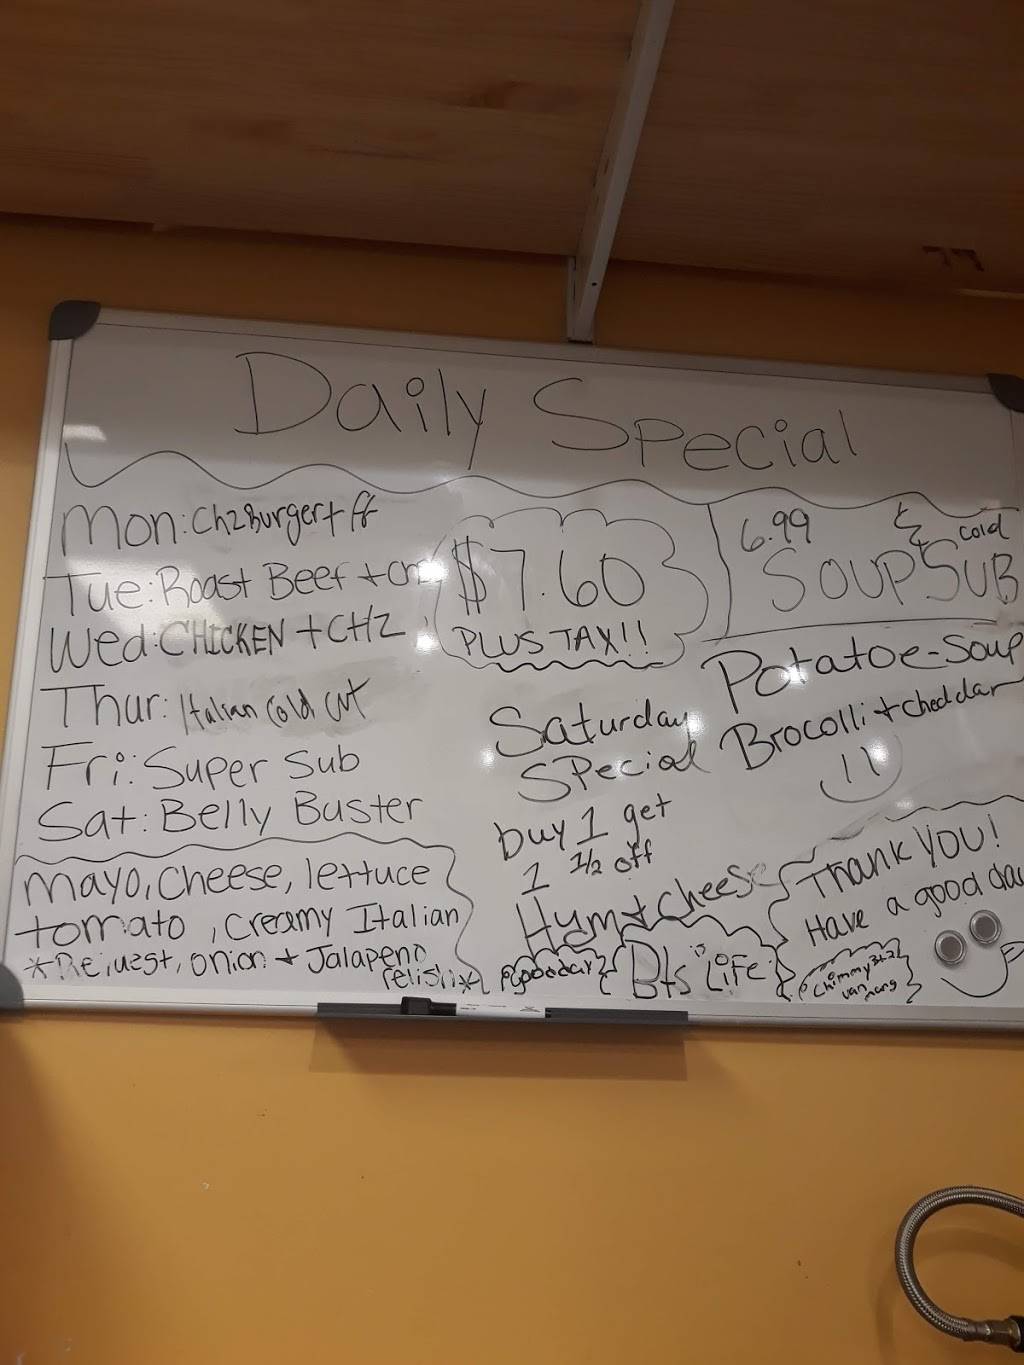 Daily Special
Mon: ChzBurger + ff
Tue: Roast Beef + Chz
Wed: CHICKEN + CHZ
Thur: Italian Cold Cut
Fri: Super Sub
Sat: Belly Buster
mayo, cheese, lettuce
tomato, creamy Italian
onion + Jalapeno
relish *
$7.60
PLUS TAX!!
Saturday
Special
buy 1 get
1 1/2 off
Hym + cheese
Bts Life
6.99
& cold
SOUP SUB
Potatoe-Soup
Brocolli + cheddar
Thank you!
Have a good day
Chimmy